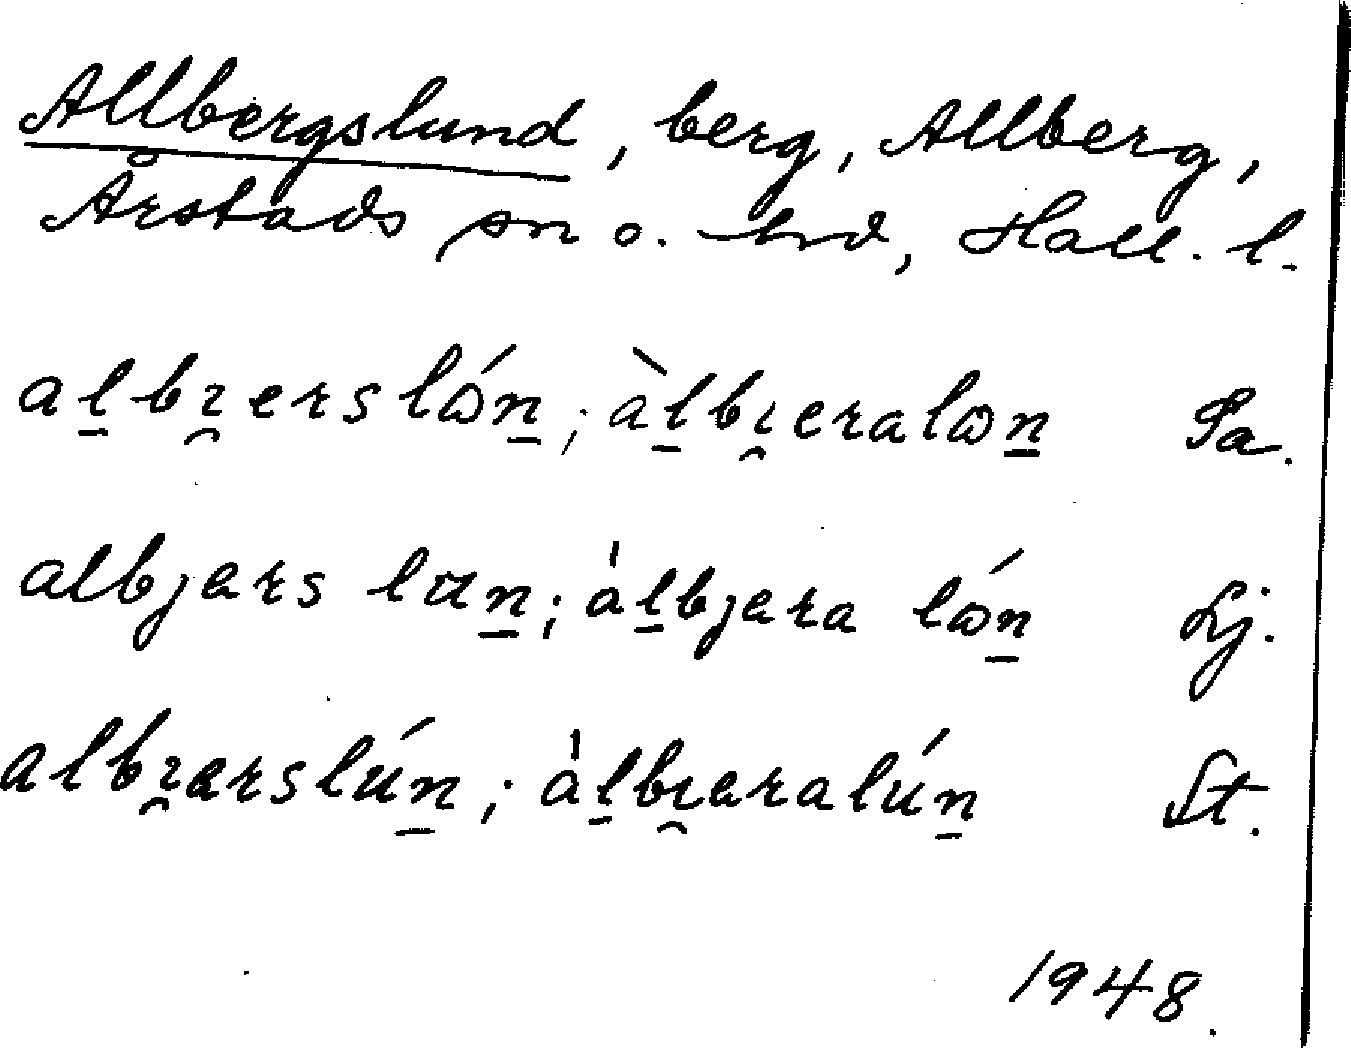 Allbergslund, berg, Allberg,
Årstads sn o. hrd, Hall. l.
al̠bı̯erslɷ́n̠; àl̠bı̯eralɷn̠ Sa.
albjers lun̠; àl̠bjera lɷ́n̠ Lj.
albı̯erslún̠; àl̠bı̯eralún̠ St.
1948.